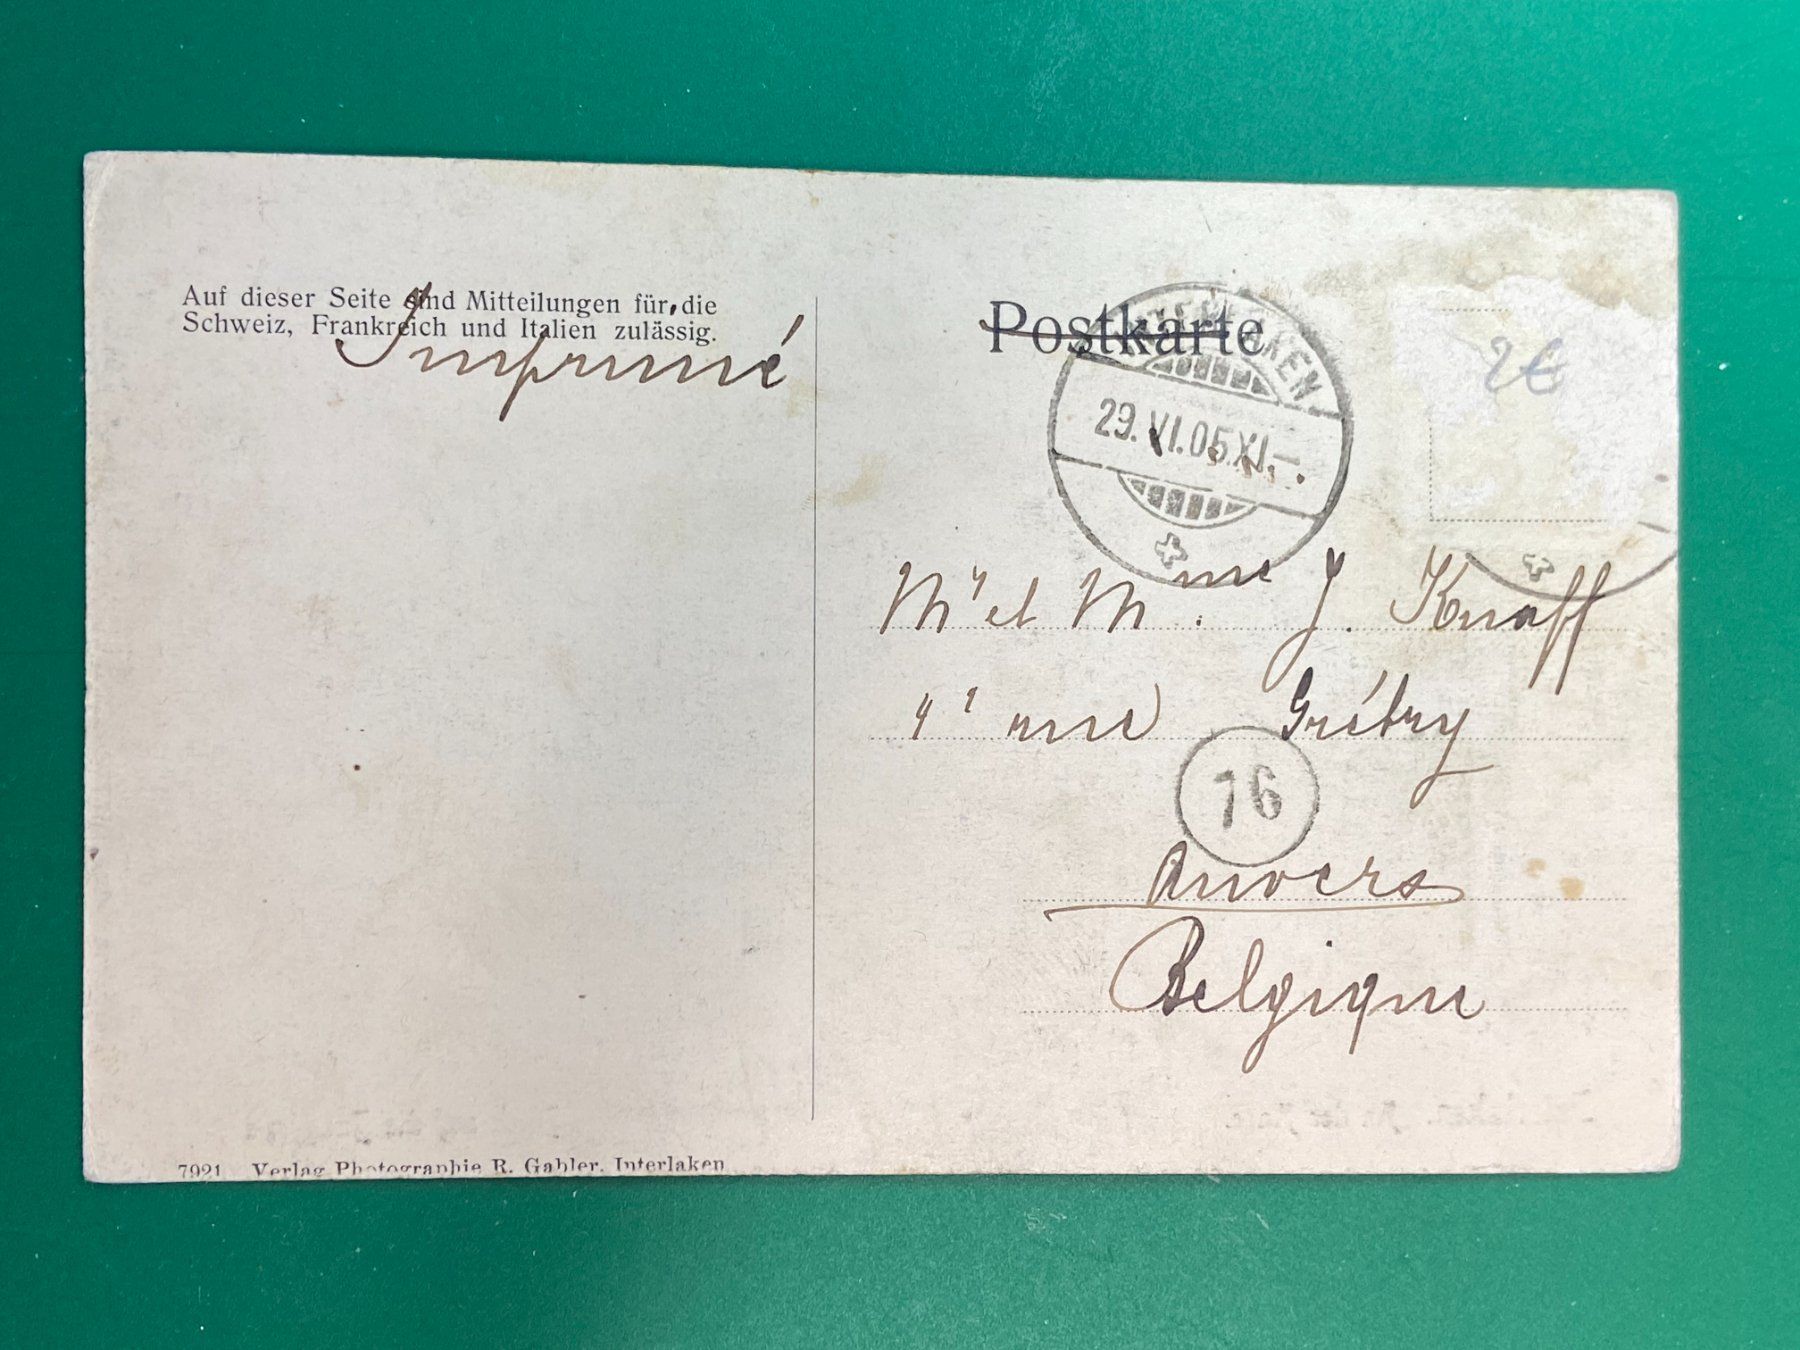 Auf dieser Seite sind Mitteilungen für die
Schweiz, Frankreich und Italien zulässig.
Imprimé
Postkarte
INTERLAKEN
29.VI.05.XI–
2€
Mr et Mme J. Knaff
rue Grétry
76
Anvers
Belgique
7921 Verlag Photographie R. Gabler, Interlaken